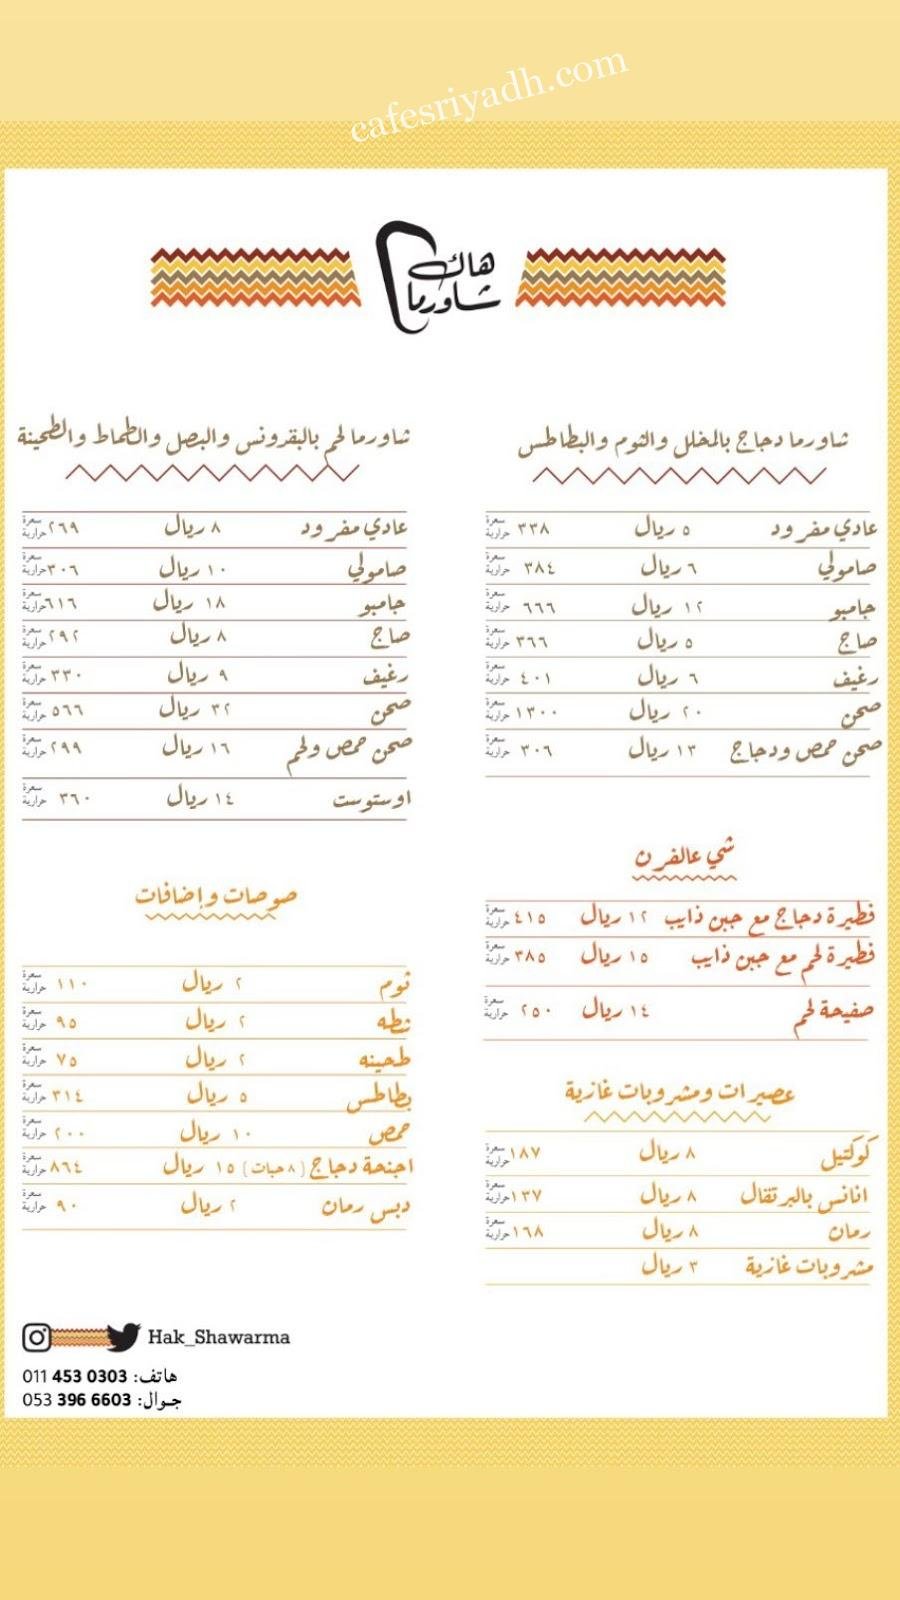 cafesriyadh.com
هاك
شاورما
شاورما دجاج بالمخلل والثوم والبطاطس
عادي مفرود ٥ ريال ٣٣٨ سعرة حرارية
صامولي ٦ ريال ٣٨٤ سعرة حرارية
جامبو ١٢ ريال ٦٦٦ سعرة حرارية
صاج ٥ ريال ٣٦٦ سعرة حرارية
رغيف ٦ ريال ٤٠١ سعرة حرارية
صحن ٢٠ ريال ١٣٠٠ سعرة حرارية
صحن حمص ودجاج ١٣ ريال ٣٠٦ سعرة حرارية
شي عالفرن
فطيرة دجاج مع جبن ذايب ١٢ ريال ٤١٥ سعرة حرارية
فطيرة لحم مع جبن ذايب ١٥ ريال ٣٨٥ سعرة حرارية
صفيحة لحم ١٤ ريال ٢٥٠ سعرة حرارية
عصيرات ومشروبات غازية
كوكتيل ٨ ريال ١٨٧ سعرة حرارية
انانس بالبرتقال ٨ ريال ١٣٧ سعرة حرارية
رمان ٨ ريال ١٦٨ سعرة حرارية
مشروبات غازية ٣ ريال
شاورما لحم بالبقرونس والبصل والطماط والطحينة
عادي مفرود ٨ ريال ٢٦٩ سعرة حرارية
صامولي ١٠ ريال ٣٠٦ سعرة حرارية
جامبو ١٨ ريال ٦١٦ سعرة حرارية
صاج ٨ ريال ٢٩٢ سعرة حرارية
رغيف ٩ ريال ٣٣٠ سعرة حرارية
صحن ٣٢ ريال ٥٦٦ سعرة حرارية
صحن حمص ولحم ١٦ ريال ٢٩٩ سعرة حرارية
اوستوست ١٤ ريال ٣٦٠ سعرة حرارية
صوصات وإضافات
ثوم ٢ ريال ١١٠ سعرة حرارية
شطه ٢ ريال ٩٥ سعرة حرارية
طحينه ٢ ريال ٧٥ سعرة حرارية
بطاطس ٥ ريال ٣١٤ سعرة حرارية
حمص ١٠ ريال ٢٠٠ سعرة حرارية
اجنحة دجاج (٨ حبات) ١٥ ريال ٨٦٤ سعرة حرارية
دبس رمان ٢ ريال ٩٠ سعرة حرارية
Hak_Shawarma
هاتف: 011 453 0303
جوال: 053 396 6603